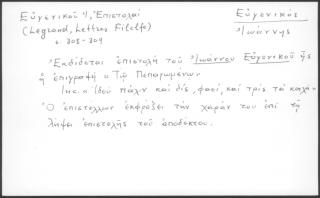 Εὐγενικοῦ Ἰ, Ἐπιστολαί
Εὐγενικός
(Legrand, Lettres Filelfe)
Ἰωάννης
σ. 303-304
Ἐκδίδεται ἐπιστολή τοῦ Ἰωάννου Εὐγενικοῦ ἧς
ἡ ἐπιγραφή: Τῷ Πεπαγωμένῳ
Inc.: Ἰδού πάλιν καί δίς, φασί, καί τρίς τά καλά
Ὁ ἐπιστέλλων ἐκφράζει τήν χαράν του ἐπί τῇ
λήψει ἐπιστολῆς τοῦ ἀποδέκτου.